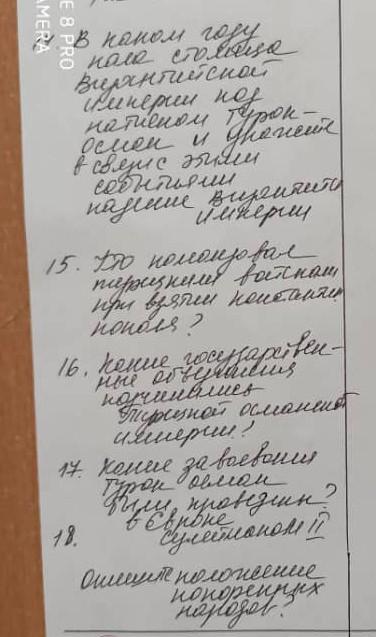 E 8 PRO
AMERA
В каком году
пала столица
Византийской
империи под
натиском турок-
осман и укажите
в связи с этими
событиями
падение Византийс
империи
15. Кто командовал
турецкими войсками
при взятии константи
нополя?
16. какие государствен-
ные объединения
подчинились
турецкой османской
империи?
17. какие завоевания
турок осман
были проведены?
в Европе
18. сулейманом II
Опишите положение
покоренных
народов?